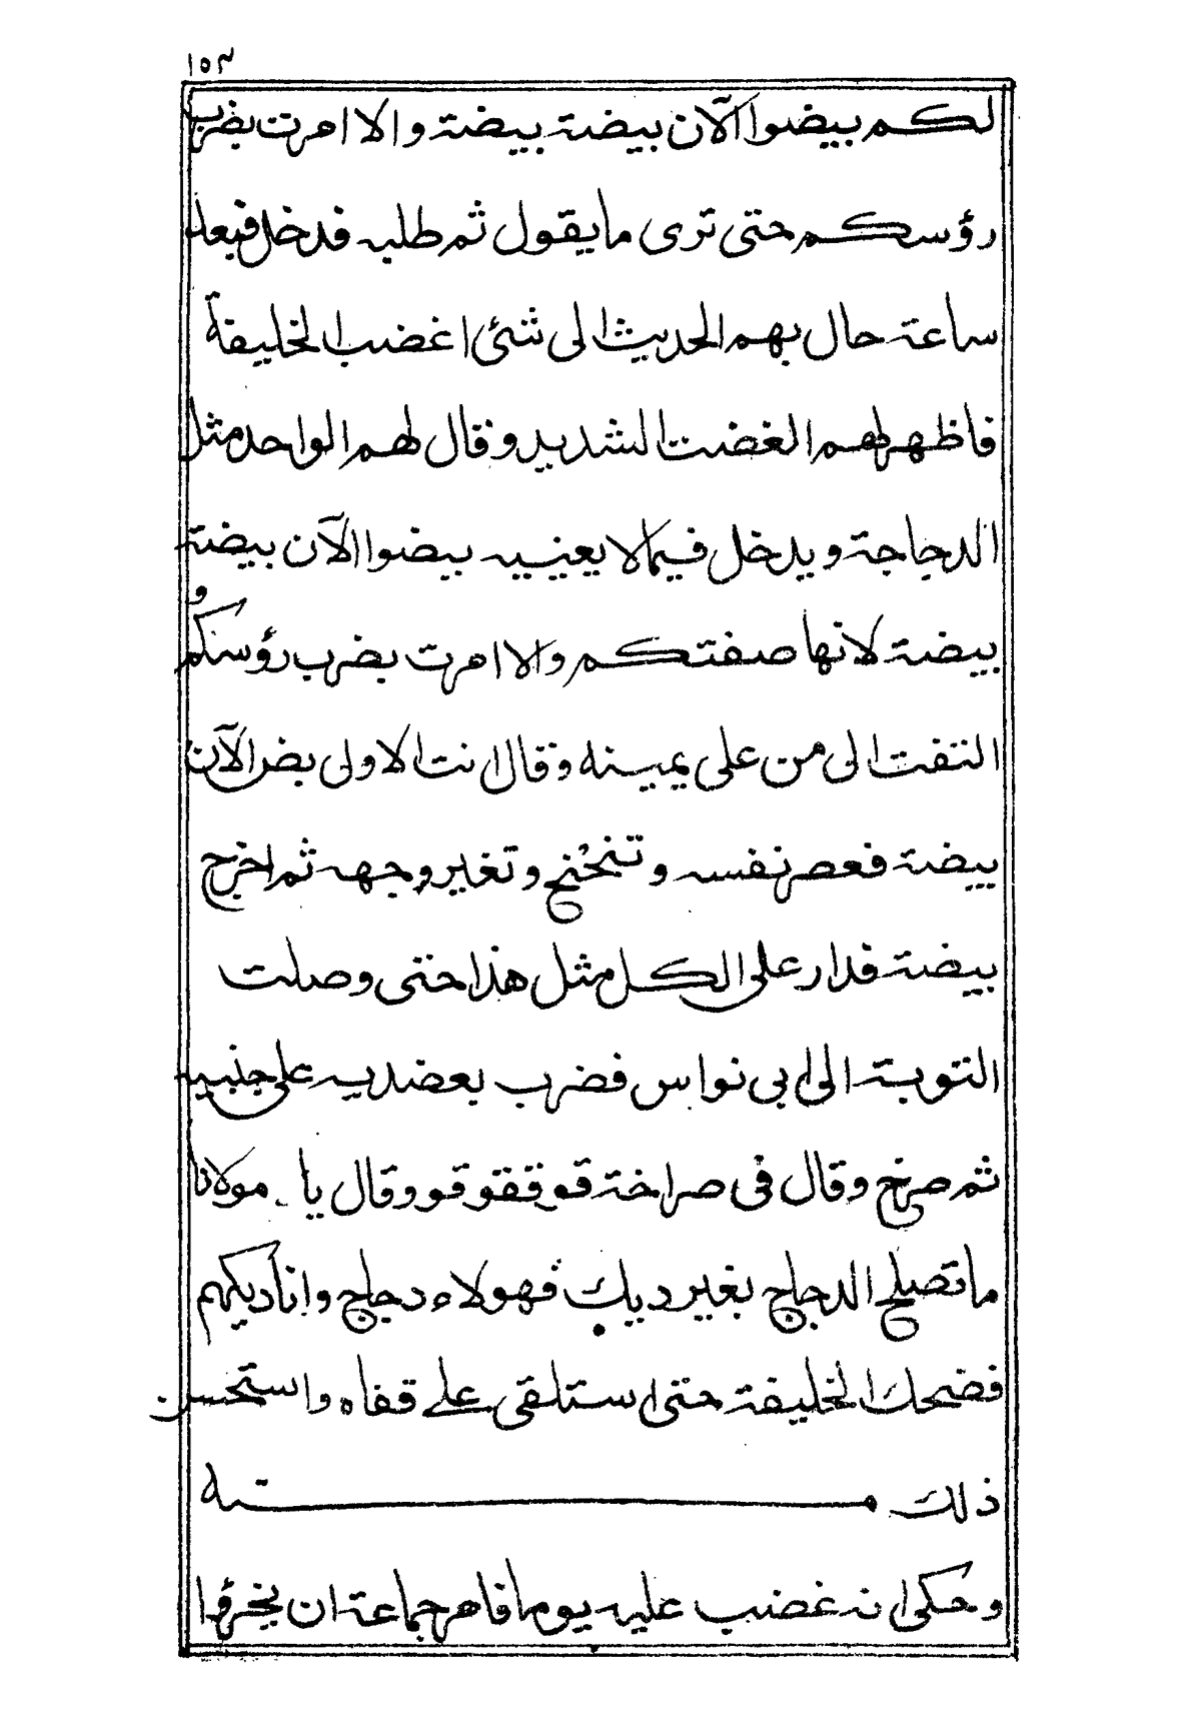 ١٥٣
لكم بيضوا الآن بيضة بيضة والا امرت بضرب
رؤسكم حتى ترى ما يقول ثم طلبه فدخل فبعد
ساعة حال بهم الحديث الى شئ اغضب الخليفة
فاظهر لهم الغضب الشديد وقال لهم الواحد مثل
الدجاجة ويدخل فيما لا يعنييه بيضوا الآن بيضة
بيضة لانها صفتكم والا امرت بضرب رؤسكم و
التفت الى من على يمينه وقال انت الاولى بض الآن
بيضة فعصر نفسه وتنحنح وتغير وجهه ثم اخرج
بيضة فدار على الكل مثل هذا حتى وصلت
النوبة الى ابى نواس فضرب بعضديه على جنبيه
ثم صرخ وقال فى صراخة قو ققو قو وقال يا مولانا
ما تصلح الدجاج بغير ديك فهولاء دجاج وانا ديكهم
فضحك الخليفة حتى استلقى على قفاه واستحسن
ذلك منه
وحكى انه غضب عليه يوما فامر جماعة ان يخرؤا